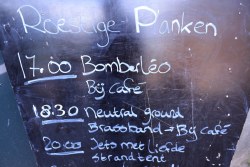 Roestige Planken
17.00 Bomberléo
Bij café
18.30 Neutral ground
Brassband → Bij café
20.00 Iets met liefde
strandtent